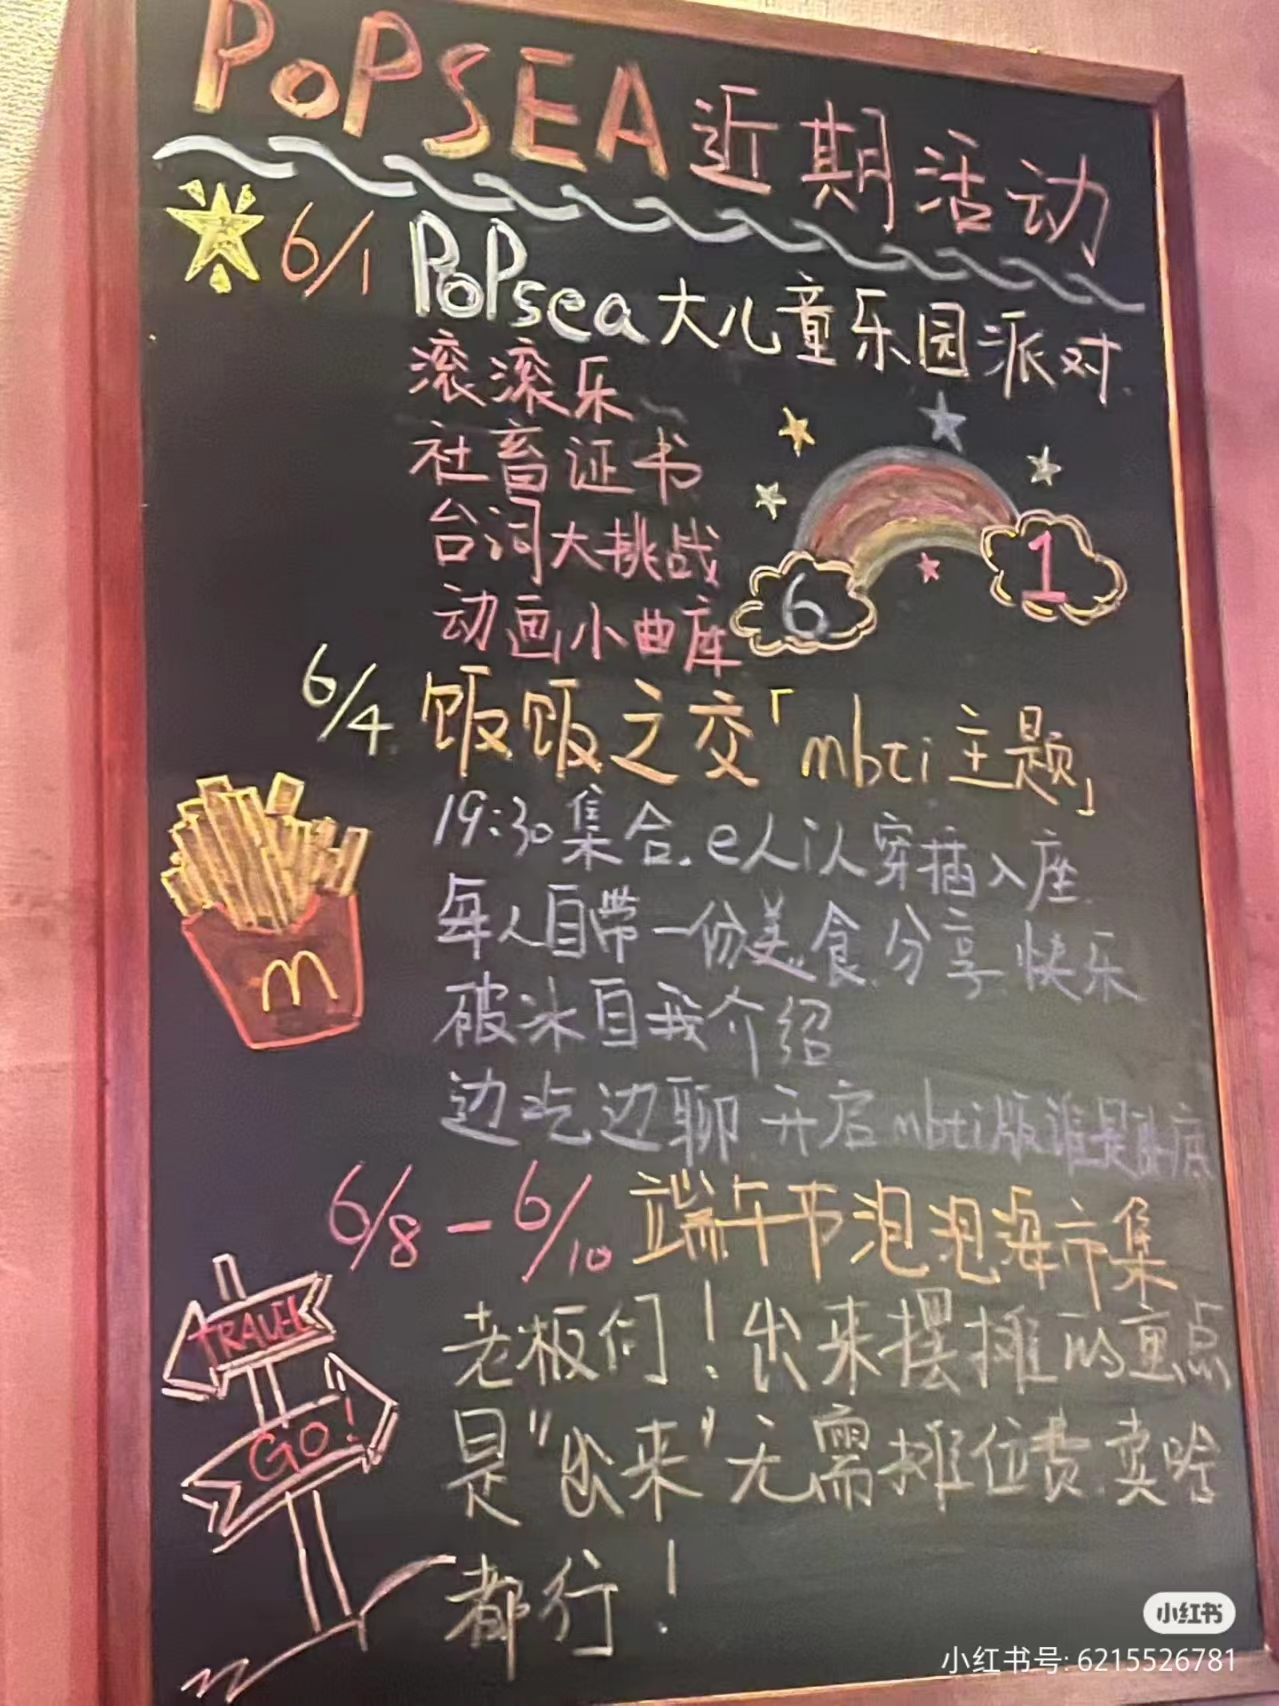 POPSEA近期活动
6/1 POPsea大儿童乐园派对
滚滚乐
社畜证书
台词大挑战
动画小曲库
6
1
6/4 饭饭之交「mbti主题」
19:30集合.e人i人穿插入座
每人自带一份美食分享快乐
破冰自我介绍
边吃边聊 开启mbti版谁是卧底
6/8-6/10 端午节泡泡海市集
老板们！出来摆摊的重点
是"出来"无需摊位费.卖啥
都行！
M
TRAVEL
GO!
小红书
小红书号: 6215526781